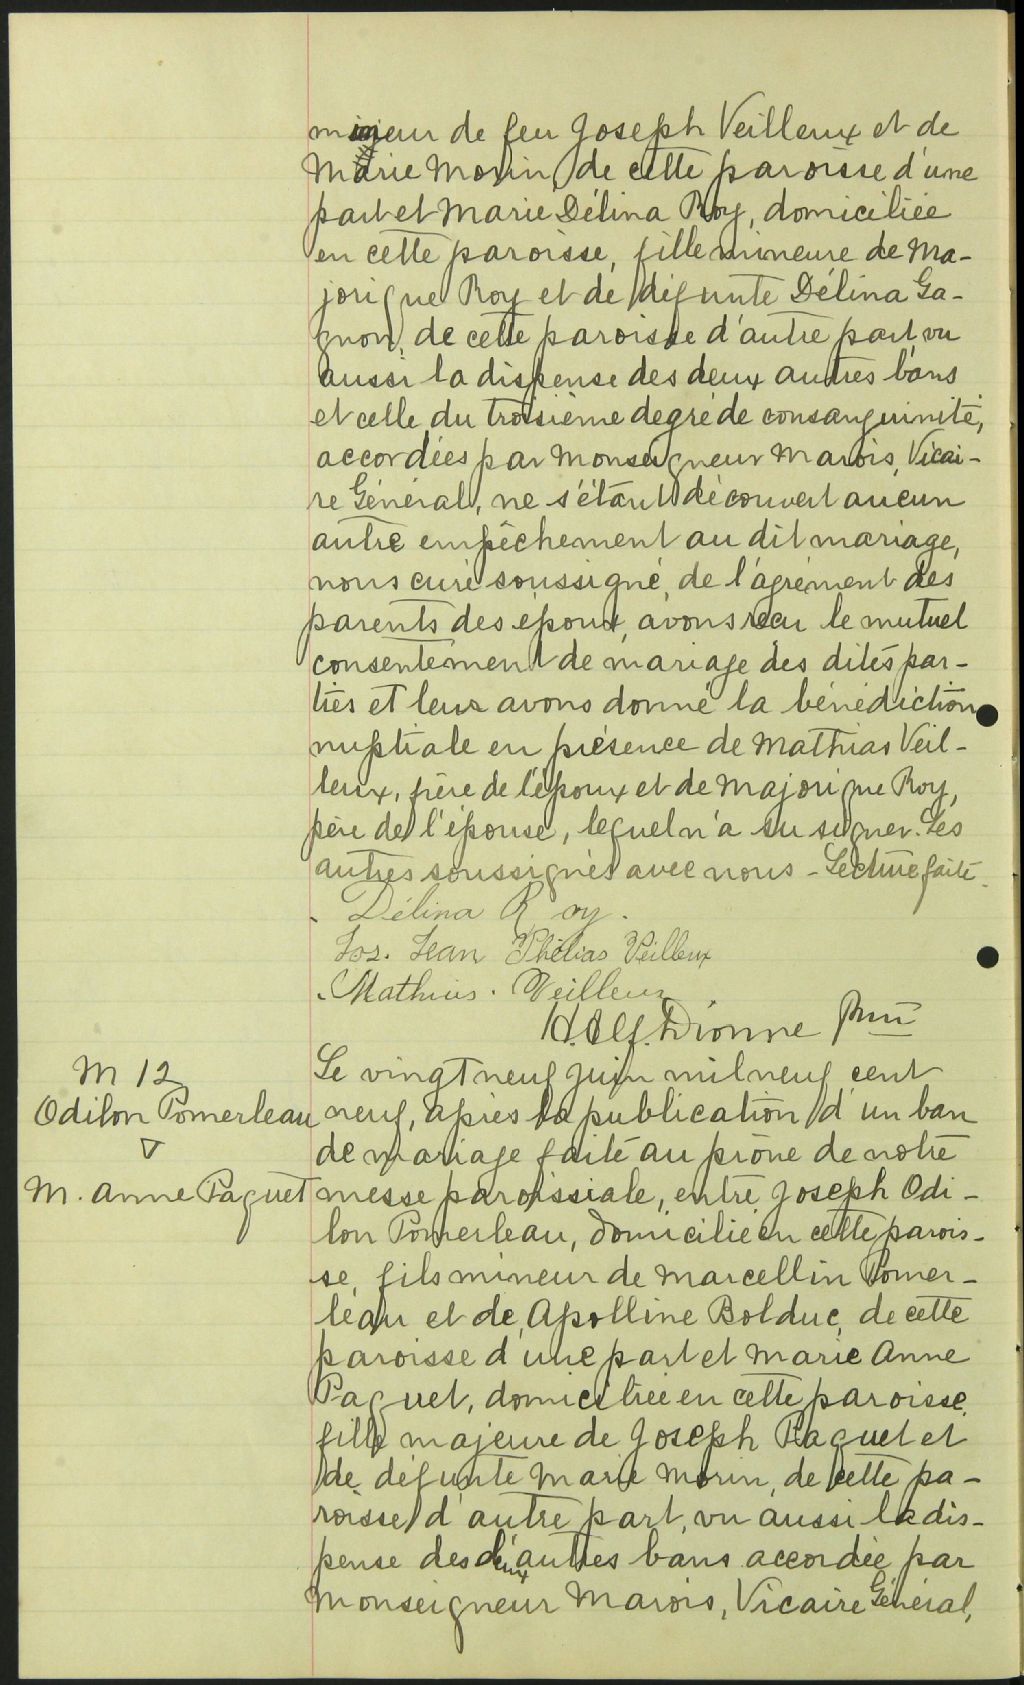 mineur de feu Joseph Veilleux et de
Marie Morin, de cette paroisse d'une
part et Marie Délina Roy, domiciliée
en cette paroisse, fille mineure de Ma-
jorique Roy et de défunte Délina Ga-
gnon, de cette paroisse d'autre part, vu
aussi la dispense des deux autres bans
et celle du troisième degré de consanguinité,
accordées par Monseigneur Marois, Vicai-
re Général, ne s'étant découvert aucun
autre empêchement au dit mariage,
nous curé soussigné, de l'agrément des
parents des époux, avons reçu le mutuel
consentement de mariage des dites par-
ties et leur avons donné la bénédiction
nuptiale en présence de Mathias Veil-
leux, frère de l'époux et de Majorique Roy,
père de l'épouse, lequel n'a su signer. Les
autres soussignés avec nous - Lecture faite.
Délina Roy.
Jos. Jean Thélias Veilleux
Mathias. Veilleux
H. Alf. Dionne Ptre
M 12
Odilon Pomerleau
&
M. Anne Paquet
Le vingt neuf juin mil neuf cent
neuf, après la publication d'un ban
de mariage faite au prône de notre
messe paroissiale, entre Joseph Odi-
lon Pomerleau, domicilié en cette parois-
se, fils mineur de Marcellin Pomer-
leau et de Apolline Bolduc, de cette
paroisse d'une part et Marie Anne
Paquet, domiciliée en cette paroisse,
fille majeure de Joseph Paquet et
de défunte Marie Morin, de cette pa-
roisse d'autre part, vu aussi la dis-
pense des deux autres bans accordée par
Monseigneur Marois, Vicaire Général,